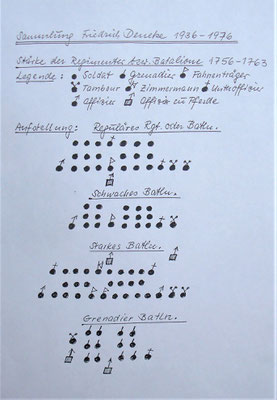 Sammlung Friedrich Deneke 1936-1976
Stärke der Regimenter bzw. Batalione 1756-1763
Legende: Soldat Grenadier Fahnenträger
Tambour Zimmermann Unteroffizier
Offizier Offizier zu Pferde
Aufstellung: Reguläres Rgt. oder Batln.
Schwaches Batln.
Starkes Batln.
Grenadier Batln.